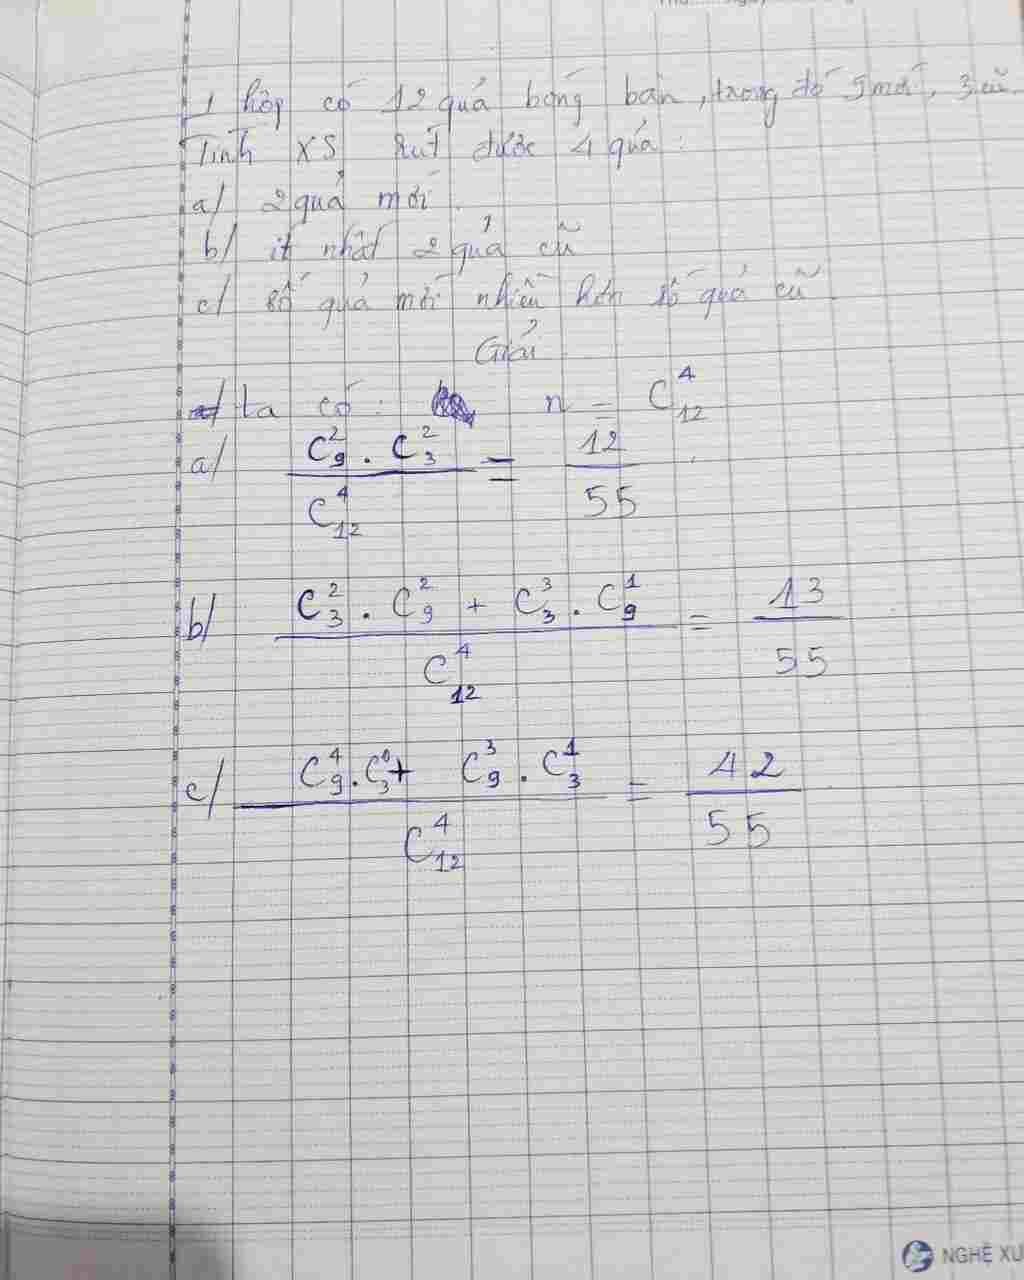 1 hộp có 12 quả bóng bàn, trong đó 9 mới, 3 cũ.
Tính XS rút được 4 quả:
a/ 2 quả mới.
b/ ít nhất 2 quả cũ
c/ số quả mới nhiều hơn số quả cũ
Giải
ta có: n = C⁴₁₂
a/ (C²₉ . C²₃) / C⁴₁₂ = 12/55
b/ (C²₃ . C²₉ + C³₃ . C¹₉) / C⁴₁₂ = 13/55
c/ (C⁴₉ . C⁰₃ + C³₉ . C¹₃) / C⁴₁₂ = 42/55
NGHỆ XU